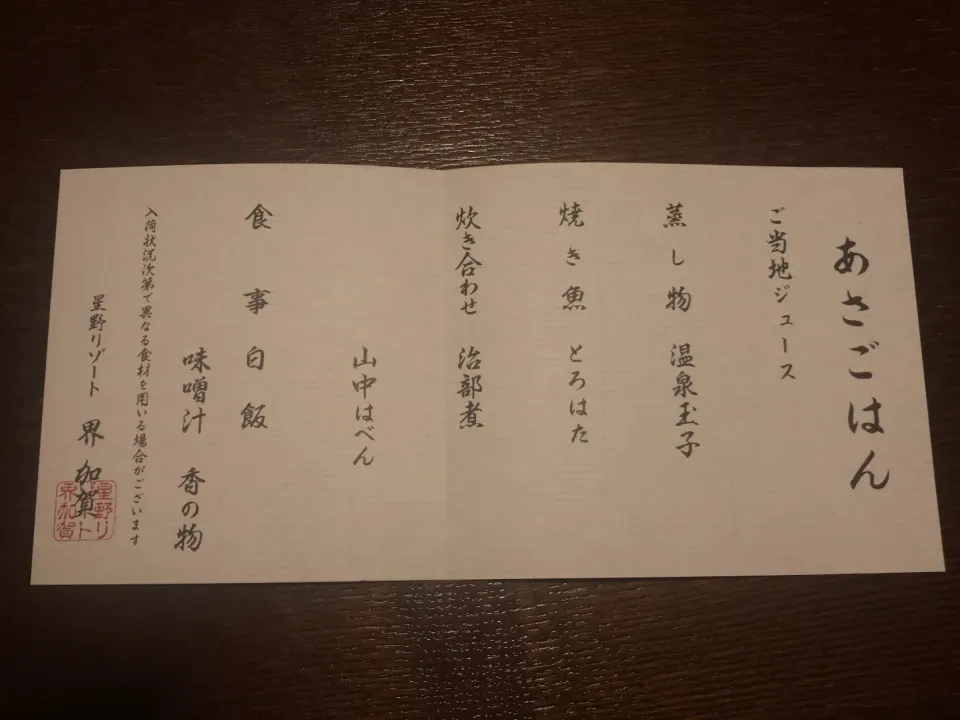 あさごはん
ご当地ジュース
蒸し物 温泉玉子
焼き魚 とろはた
炊き合わせ 治部煮
山中はべん
食事 白飯
味噌汁 香の物
入荷状況次第で異なる食材を用いる場合がございます
星野リゾート 界 加賀
星野リ
ゾート
界加賀